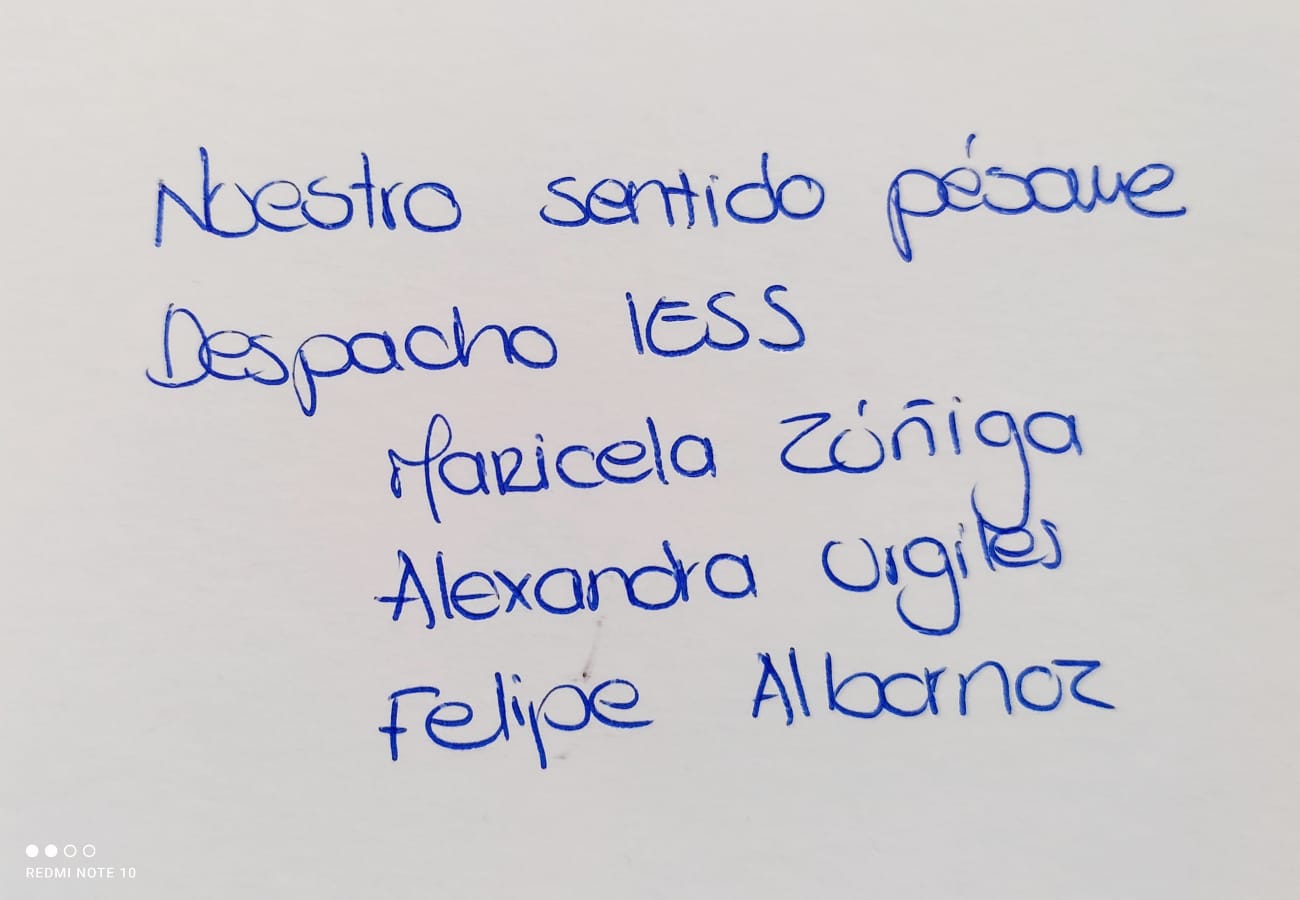 Nuestro sentido pésame
Despacho IESS
Maricela Zúñiga
Alexandra Urgiles
Felipe Albornoz
REDMI NOTE 10